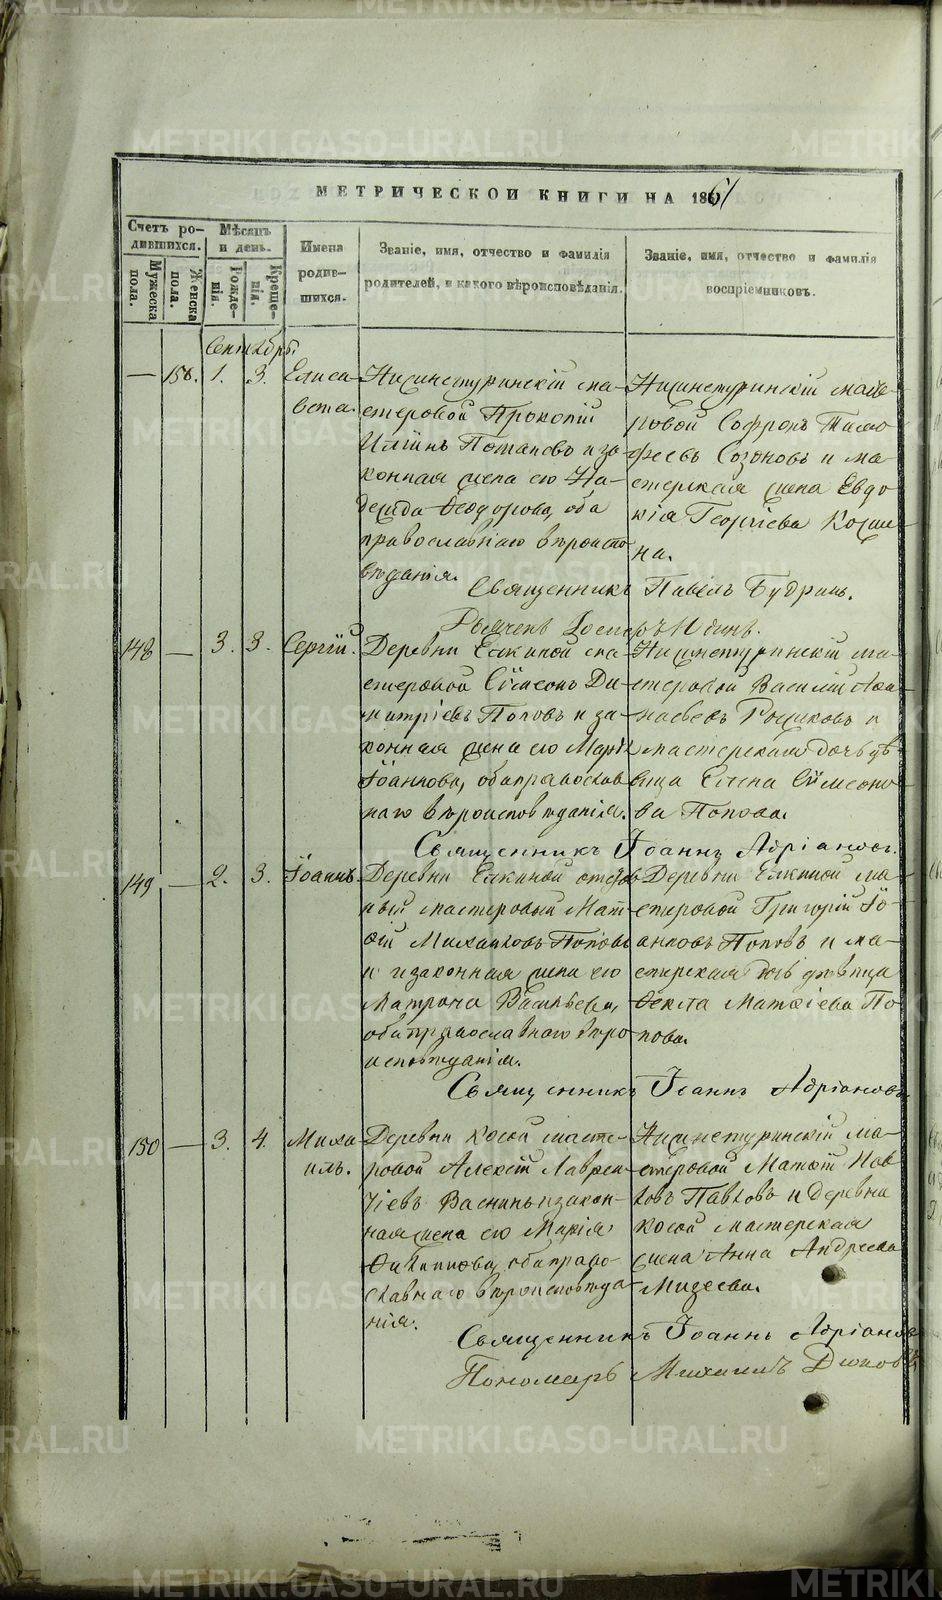 МЕТРИЧЕСКОЙ КНИГИ НА 1861
Счетъ ро-
дившихся.
Мѣсяцъ
и день.
Имена
родив-
шихся.
Званіе, имя, отчество и фамилія
родителей, и какого вѣроисповѣданія.
Званіе, имя, отчество и фамилія
воспріемниковъ.
Мужеска
пола.
Женска
пола.
Рожде-
нія.
Креще-
нія.
Сентябрь.
— 158. 1. 3. Елиса-
вета.
Нижнетуринскій ма-
стеровой Прокопій
Ильинъ Потаповъ и за-
конная жена его На-
дежда Ѳеодорова, оба
православнаго вѣроиспо-
вѣданія.
Нижнетуринскій масте-
ровой Софронъ Тимо-
феевъ Созоновъ и ма-
стерская жена Евдо-
кія Георгіева
на.
Священникъ Павелъ Будринъ.
148 — 3. 3. Сергій.
Деревни Елкиной ма-
стеровой Сѵмеонъ Ди-
митріевъ Поповъ и за-
конная жена его Марія
Іоаннова, оба православ-
наго вѣроисповѣданія.
Нижнетуринскій ма-
стеровой Василій Аѳа-
насьевъ и
мастерская дочь дѣ-
вица Елена Сѵмеоно-
ва Попова.
Священникъ Іоаннъ Адріановъ.
149. — 2. 3. Іоаннъ.
Деревни Елкиной
мастеровый Мат-
ѳій Михайловъ Поповъ
и законная жена его
Матрона Васильева,
оба православнаго вѣро-
исповѣданія.
Деревни Елкиной ма-
стеровой Григорій Іо-
анновъ Поповъ и ма-
стерская дочь дѣвица
Ѳекла Матѳіева По-
пова.
Священникъ Іоаннъ Адріановъ
150 — 3. 4. Миха-
илъ.
Деревни Косой масте-
ровой Алексій Лаврен-
тіевъ и закон-
ная жена его Марія
Филиппова, оба право-
славнаго вѣроисповѣда-
нія.
Нижнетуринскій ма-
стеровой Матѳій
Павловъ и Деревни
Косой мастерская
жена Анна Андреева
Мизеева.
Священникъ Іоаннъ Адріановъ
Пономарь Михаилъ
METRIKI.GASO-URAL.RU